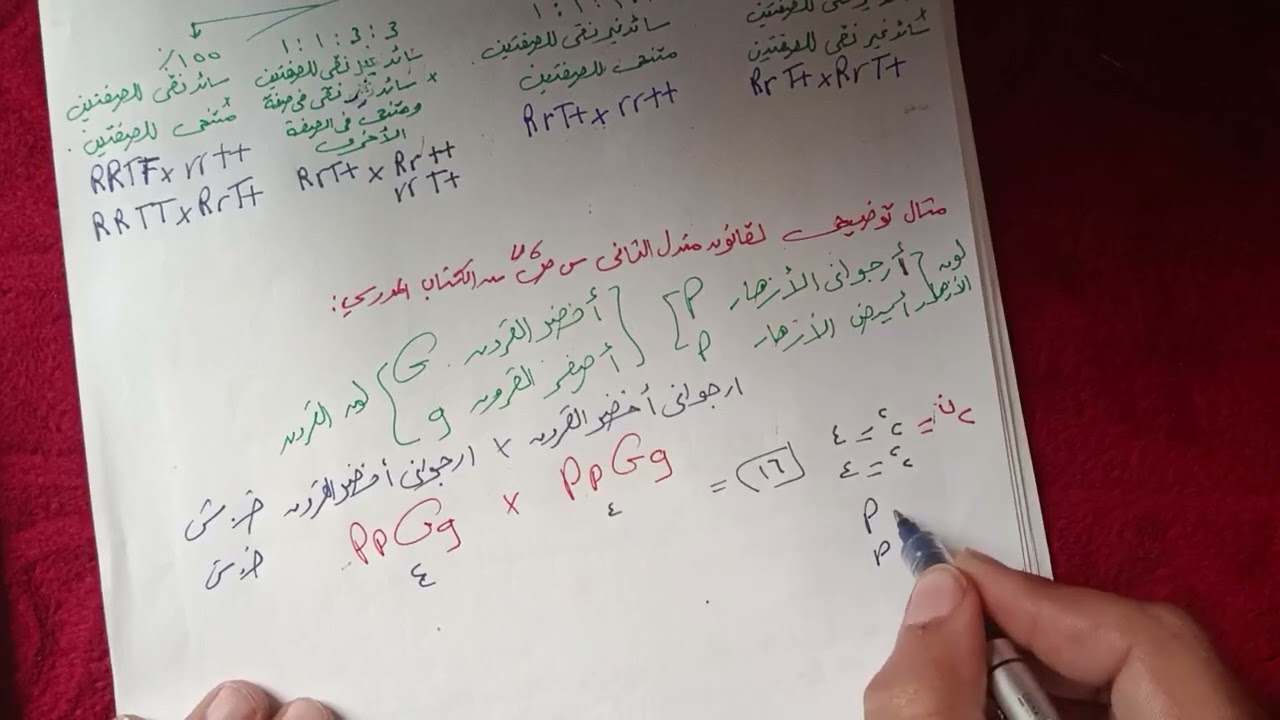 ١ : ١ : ٣ : ٣
٪١٠٠
سائد غير نقي للصفتين
سائد غير نقي للصفتين
سائد غير نقي للصفتين
سائد نقي للصفتين
متنحي للصفتين
× سائد غير نقي في صفة
× متنحي للصفتين
ومتنحي في الصفة
الأخرى
RrTt x RrTt
RrTt x rrtt
RrTt x Rrtt
rrTt
RRTT x rrtt
RRTT x RrTt
مثال توضيحي لقانون مندل الثاني س ص من الكتاب المدرسي :
لون الأزهار
أرجواني الأزهار P
أبيض الأزهار p
أخضر القرون G
أصفر القرون g
لون القرون
ارجواني أخضر القرون × ارجواني أخضر القرون
PpGg x PpGg
٤ ٤
= ١٦
٢ن = ٢٢ = ٤
٢٢ = ٤
P
p